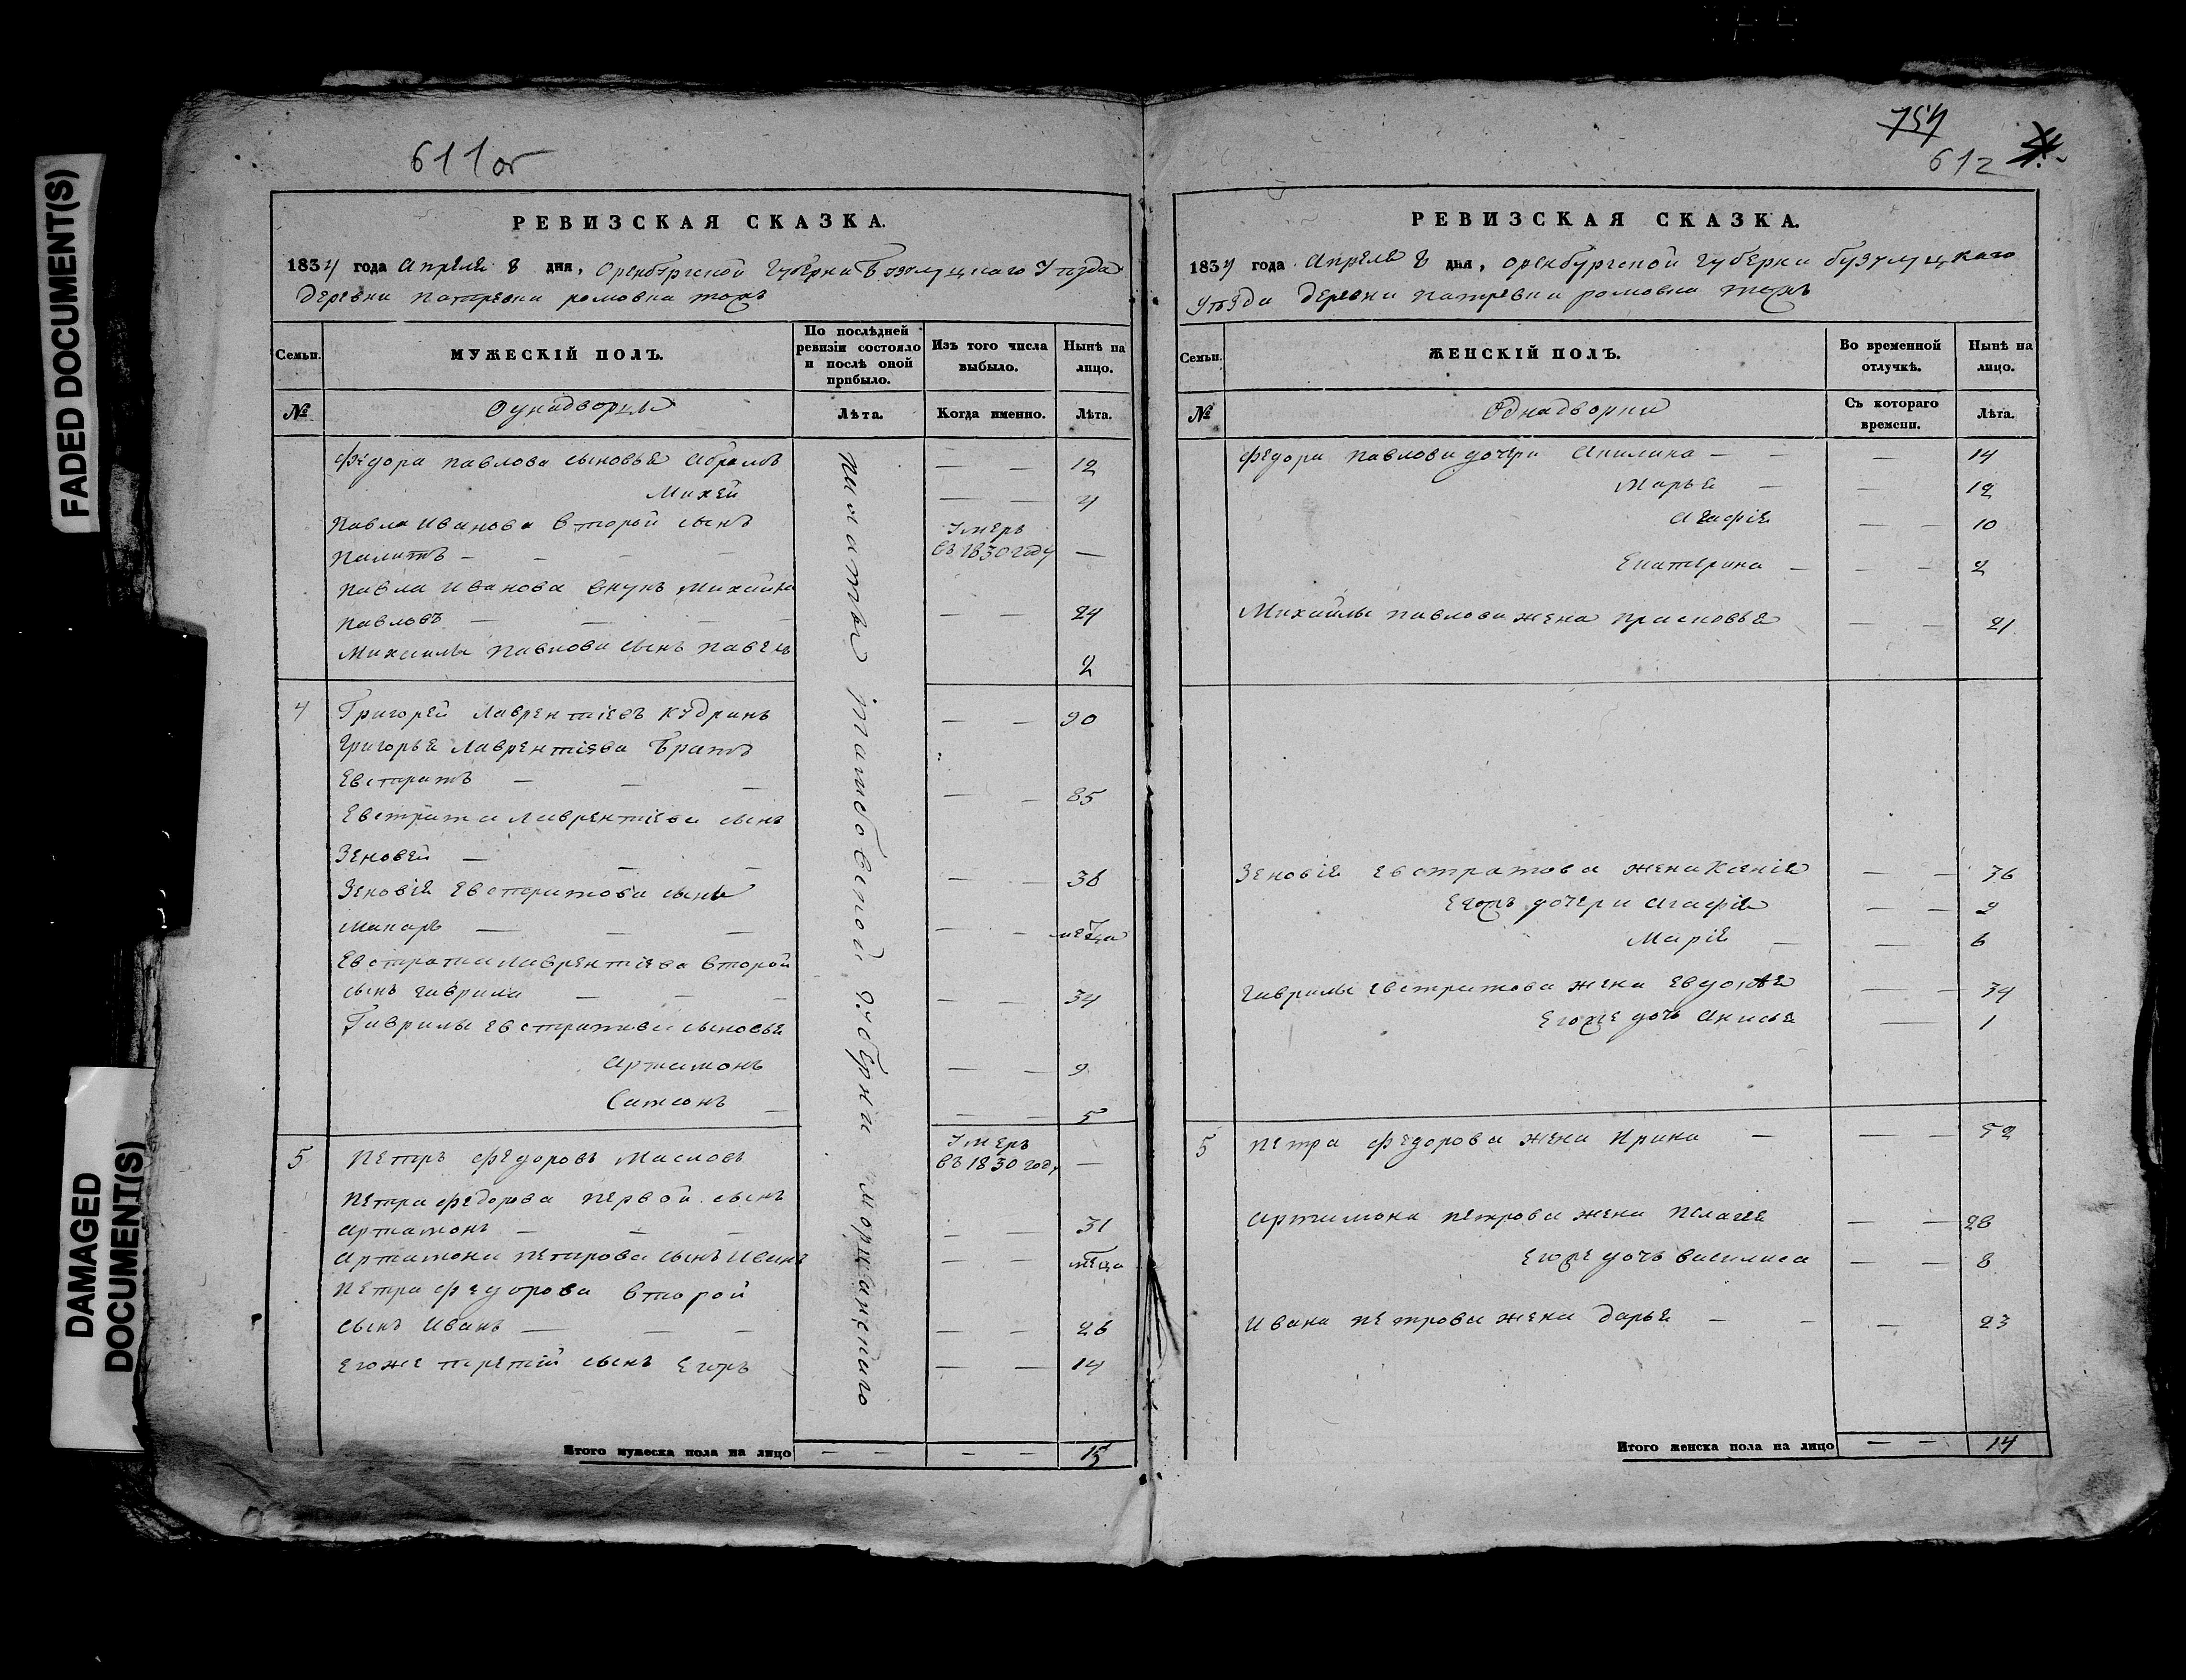 FADED DOCUMENT(S)
DAMAGED DOCUMENT(S)
611 об
РЕВИЗСКАЯ СКАЗКА.
1834 года Апреля 8 дня, Оренбургской Губерни Бузулуцкаго Уѣзда
деревни Патревки ромовка тожъ
Семьи.
МУЖЕСКІЙ ПОЛЪ.
По послѣдней ревизіи состояло и послѣ оной прибыло.
Изъ того числа выбыло.
Нынѣ на лицо.
№
Однадворцы
Лѣта.
Когда именно.
Лѣта.
Федора Павлова сыновья Абрамъ — — 12
Михей — — 4
Павла Иванова второй сынъ Умеръ
— — — въ 1830 году —
Павла Иванова внукъ Михайла
Павловъ — — — — — 24
Михайлы Павлова сынъ Павелъ 2
4 Григорей Лаврентіевъ Кудринъ — — 90
Григорья Лаврентіева братъ
Евстратъ — — — — — 85
Евстрата Лаврентіева сынъ
Зеновей — — — — — 38
Зеновія Евстратова сынъ
Макаръ — — — — —
Евстрата Лаврентіева второй
сынъ Гаврила — — — — — 34
Гаврилы Евстратова сыновья
Артамонъ — — 9
Самсонъ — — — 5
5 Петръ Федоровъ Масловъ Умеръ въ 1830 году —
Петра Федорова первой сынъ
Артамонъ — — — — — 31
Артамона Петрова сынъ Иванъ — —
Петра Федорова второй
сынъ Иванъ — — — — — 26
Егоже третій сынъ Егоръ — — 14
Итого мужеска пола на лицо — — — — 15
Тамбовской губерни
754
612
РЕВИЗСКАЯ СКАЗКА.
1834 года Апреля 8 дня, Оренбургской губерни бузулуцкаго
уѣзда деревни Патревки ромовка тожъ
Семьи.
ЖЕНСКІЙ ПОЛЪ.
Во временной отлучкѣ.
Нынѣ на лицо.
№
Однадворки
Съ котораго времени.
Лѣта.
Федора Павлова дочери Акилина — — — 14
Марья — — 12
Агафія — — 10
Екатерина — — — 2
Михайлы Павлова жена Прасковья — — 21
Зеновія Евстратова жена Ксенія — — 36
Егожъ дочери Агафія — — 2
Марія — — 6
Гаврилы Евстратова жена — — 34
Егоже дочь Анисья — 1
5 Петра Федорова жена Ирина — — — 52
Артамона Петрова жена Пелагея — — 28
Егоже дочь Василиса — — 8
Ивана Петрова жена Дарья — — — 23
Итого женска пола на лицо — — 14